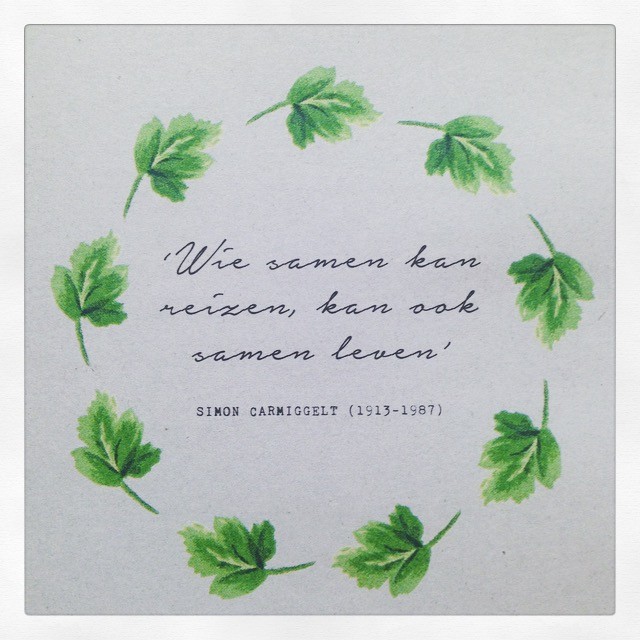 'Wie samen kan
reizen, kan ook
samen leven'
SIMON CARMIGGELT (1913-1987)